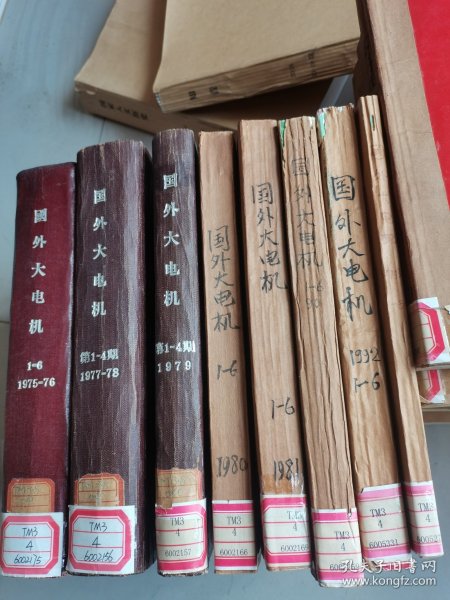 國外大电机
1-6
1975-76
TM3
4
6002175
国外大电机
第1-4期
1977-78
TM3
4
6002156
国外大电机
第1-4期
1979
TM3
4
6002157
国外大电机
1-6
1980
TM3
4
6002166
国外大电机
1-6
1981
4
国外大电机
1-6
90
TM3
4
国外大电机
1992
1-6
TM3
4
6005231
TM3
4
孔夫子旧书网